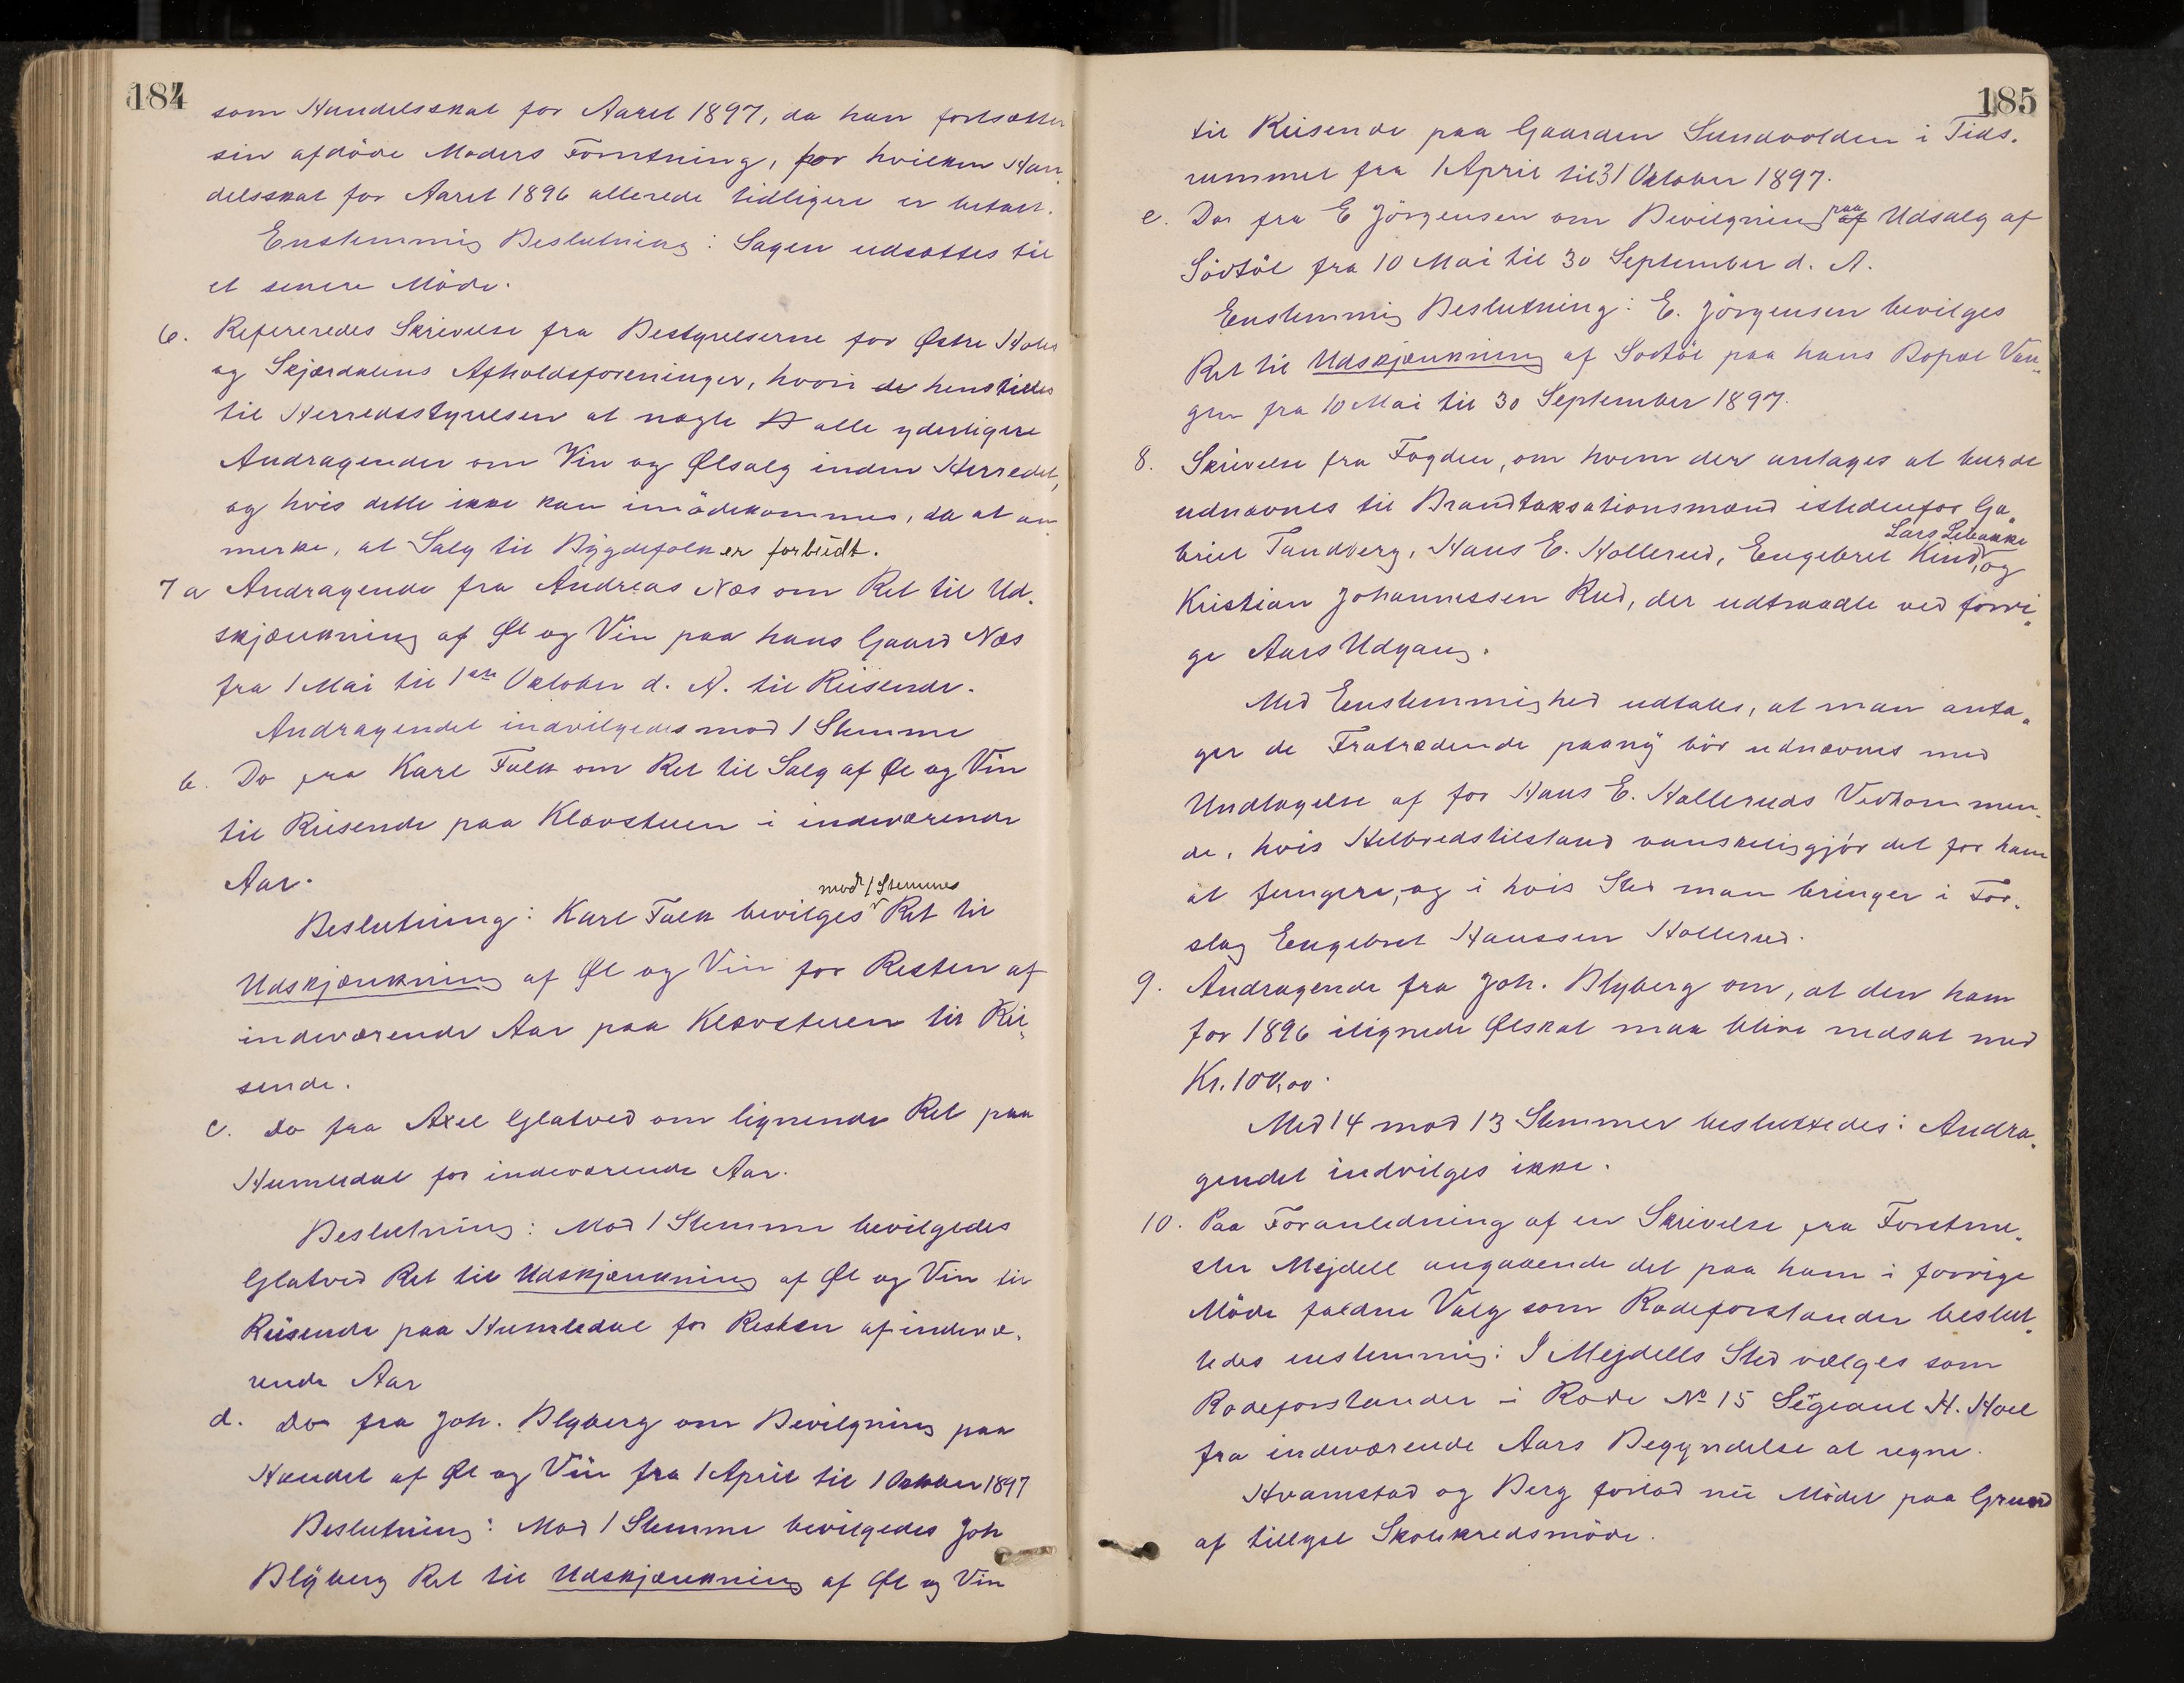 184
som Handelsskat for Aaret 1897, da han fortsætter
sin afdöde Moders Forretning, for hvilken Han-
delsskat for Aaret 1896 allerede tidligere er betalt.
Enstemmig Beslutning: Sagen udsattes til
et senere Möde.
6. Refereredes Skrivelse fra Bestyrelserne for Østre Holes
og Skjærdalens Afholdsforeninger, hvori de henstilles
til Herredsstyrelsen at nægte alle yderligere
Andragender om Vin og Ølsalg inden Herredet,
og hvis dette ikke kan imödekommes, da at an-
merke, at Salg til Bygdefolk er forbudt.
7 a Andragende fra Andreas Næs om Ret til Ud-
skjænkning af Øl og Vin paa hans Gaard Næs
fra 1 Mai til 1ste Oktober d. A. til Reisende.
Andragendet indvilgedes mod 1 Stemme
b. Do fra Karl Falk om Ret til Salg af Øl og Vin
til Reisende paa Kløvstuen i indeværende
Aar.
mod 1 Stemmes
Beslutning: Karl Falk bevilges Ret til
Udskjænkning af Øl og Vin for Resten af
indeværende Aar paa Kløvstuen til Rei-
sende.
c. Do fra Axel Glatved om lignende Ret paa
Humledal for indeværende Aar.
Beslutning: Mod 1 Stemme bevilgedes
Glatved Ret til Udskjænkning af Øl og Vin til
Reisende paa Humledal for Resten af indevæ-
rende Aar
d. Do fra Joh. Blyberg om Bevilgning paa
Handel af Øl og Vin fra 1 April til 1 Oktober 1897
Beslutning: Mod 1 Stemme bevilgedes Joh
Blyberg Ret til Udskjænkning af Øl og Vin
185
til Reisende paa Gaarden Sundvolden i Tids-
rummet fra 1 April til 31 Oktober 1897.
e. Do fra E Jörgensen om Bevilgning paa af Udsalg af
Södtöl fra 10 Mai til 30 September d. A.
Enstemmig Beslutning: E. Jörgensen bevilges
Ret til Udskjænkning af Sodtöl paa hans Bopæl Væn-
gen fra 10 Mai til 30 September 1897.
8. Skrivelse fra Fogden, om hvem der antages at burde
udnævnes til Brandtaksationsmænd istedenfor Ga-
Lars Libakke
briel Tandberg, Hans E. Hollerud, Engebret Kind, og
Kristian Johannessen Rud, der udtraadte ved forri-
ge Aars Udgang.
Med Enstemmighed udtales, at man anta-
ger de Fratrædende paany bör udnævnes med
Undtagelse af for Hans E. Holleruds Vedkommen-
de, hvis Helbredstilstand vanskeliggjör det for ham
at fungere, og i hvis Sted man bringer i For-
slag Engebret Hanssen Hollerud.
9. Andragende fra Joh. Blyberg om, at den ham
for 1896 ilignede Ølskat maa blive nedsat med
Kr. 100,00.
Med 14 mod 13 Stemmer besluttedes: Andra-
gendet indvilges ikke.
10. Paa Foranledning af en Skrivelse fra Forstme-
ster Mejdell angaaende det paa ham i forrige
Möde faldne Valg som Rodeforstander beslut-
tedes enstemmig: I Mejdells Sted vælges som
Rodeforstander i Rode No 15 Sergeant H. Hoel
fra indeværende Aars Begyndelse at regne.
Hvamstad og Berg forlod nu Mödet paa Grund
af tillyst Skolekredsmöde.